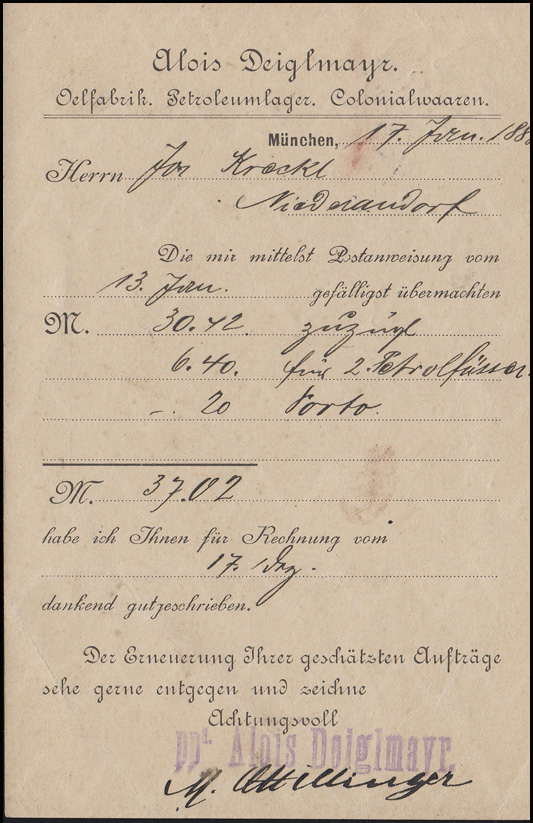 Alois Deiglmayr.
Oelfabrik. Petroleumlager. Colonialwaaren.
München, 17. Jan. 188
Herrn Jos Kreckl
Niederandorf
Die mir mittelst Postanweisung vom
13. Jan. gefälligst übermachten
M. 30.42 zuzügl
6.40. für 2. Petrolfässer.
–. 20 Porto.
M. 37.02
habe ich Ihnen für Rechnung vom
17. Dez.
dankend gutgeschrieben.
Der Erneuerung Ihrer geschätzten Aufträge
sehe gerne entgegen und zeichne
Achtungsvoll
ppa. Alois Deiglmayr.
M.